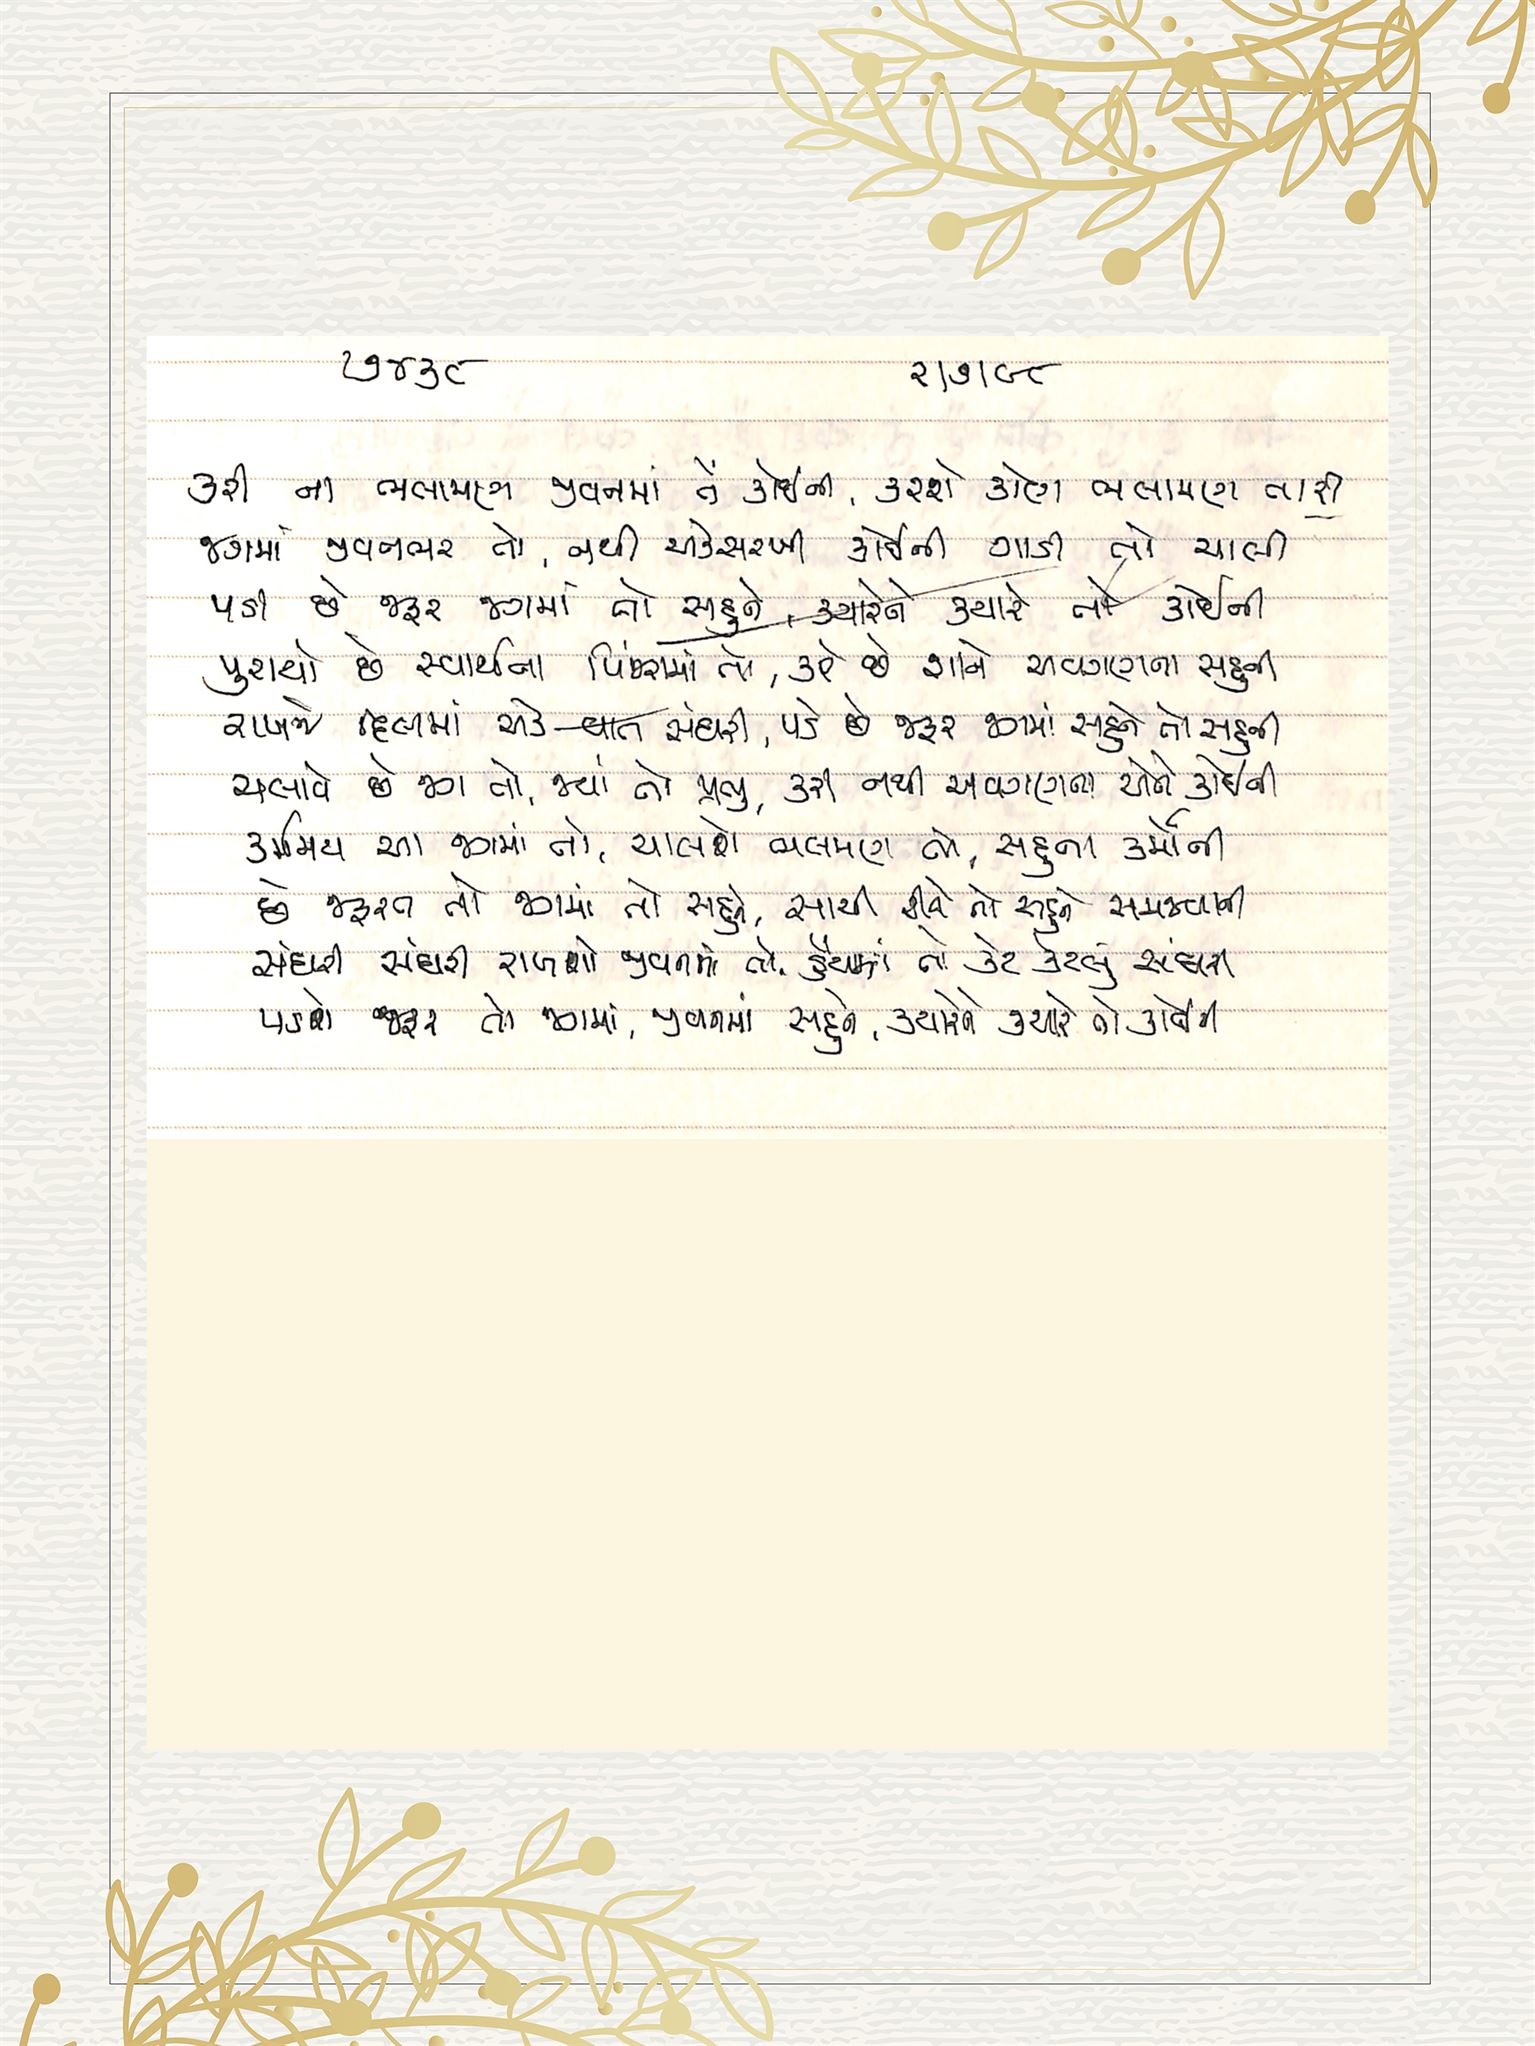 ૭૪૩૯ ૨/૭/૯૮
કરી ના ભલામણ જીવનમાં તેં કોઈની, કરશે કોણ ભલામણ તારી
જગમાં જીવનભર તો, નથી એકસરખી કોઈની ગાડી તો ચાલી
પડી છે જરૂર જગમાં તો સહુને, ક્યારેને ક્યારે તો કોઈની
પુરાયો છે સ્વાર્થના પિંજરામાં તો, કરે છે શાને અવગણના સહુની
રાખજે દિલમાં એક વાત સંઘરી, પડે છે જરૂર જગમાં સહુને તો સહુની
ચલાવે છે જગ તો, જ્યાં તો પ્રભુ, કરી નથી અવગણના એને કોઈની
કર્મમય આ જગમાં તો, ચાલશે ભલામણ તો, સહુના કર્મોની
છે જરૂરત તો જગમાં તો સહુને, સાચી રીતે તો સહુને સમજવાની
સંઘરી સંઘરી રાખશો જીવનમાં તો, હૈયામાં તો કેટ કેટલું સંઘરી
પડશે જરૂર તો જગમાં, જીવનમાં સહુને, ક્યારેને ક્યારે તો કોઈની